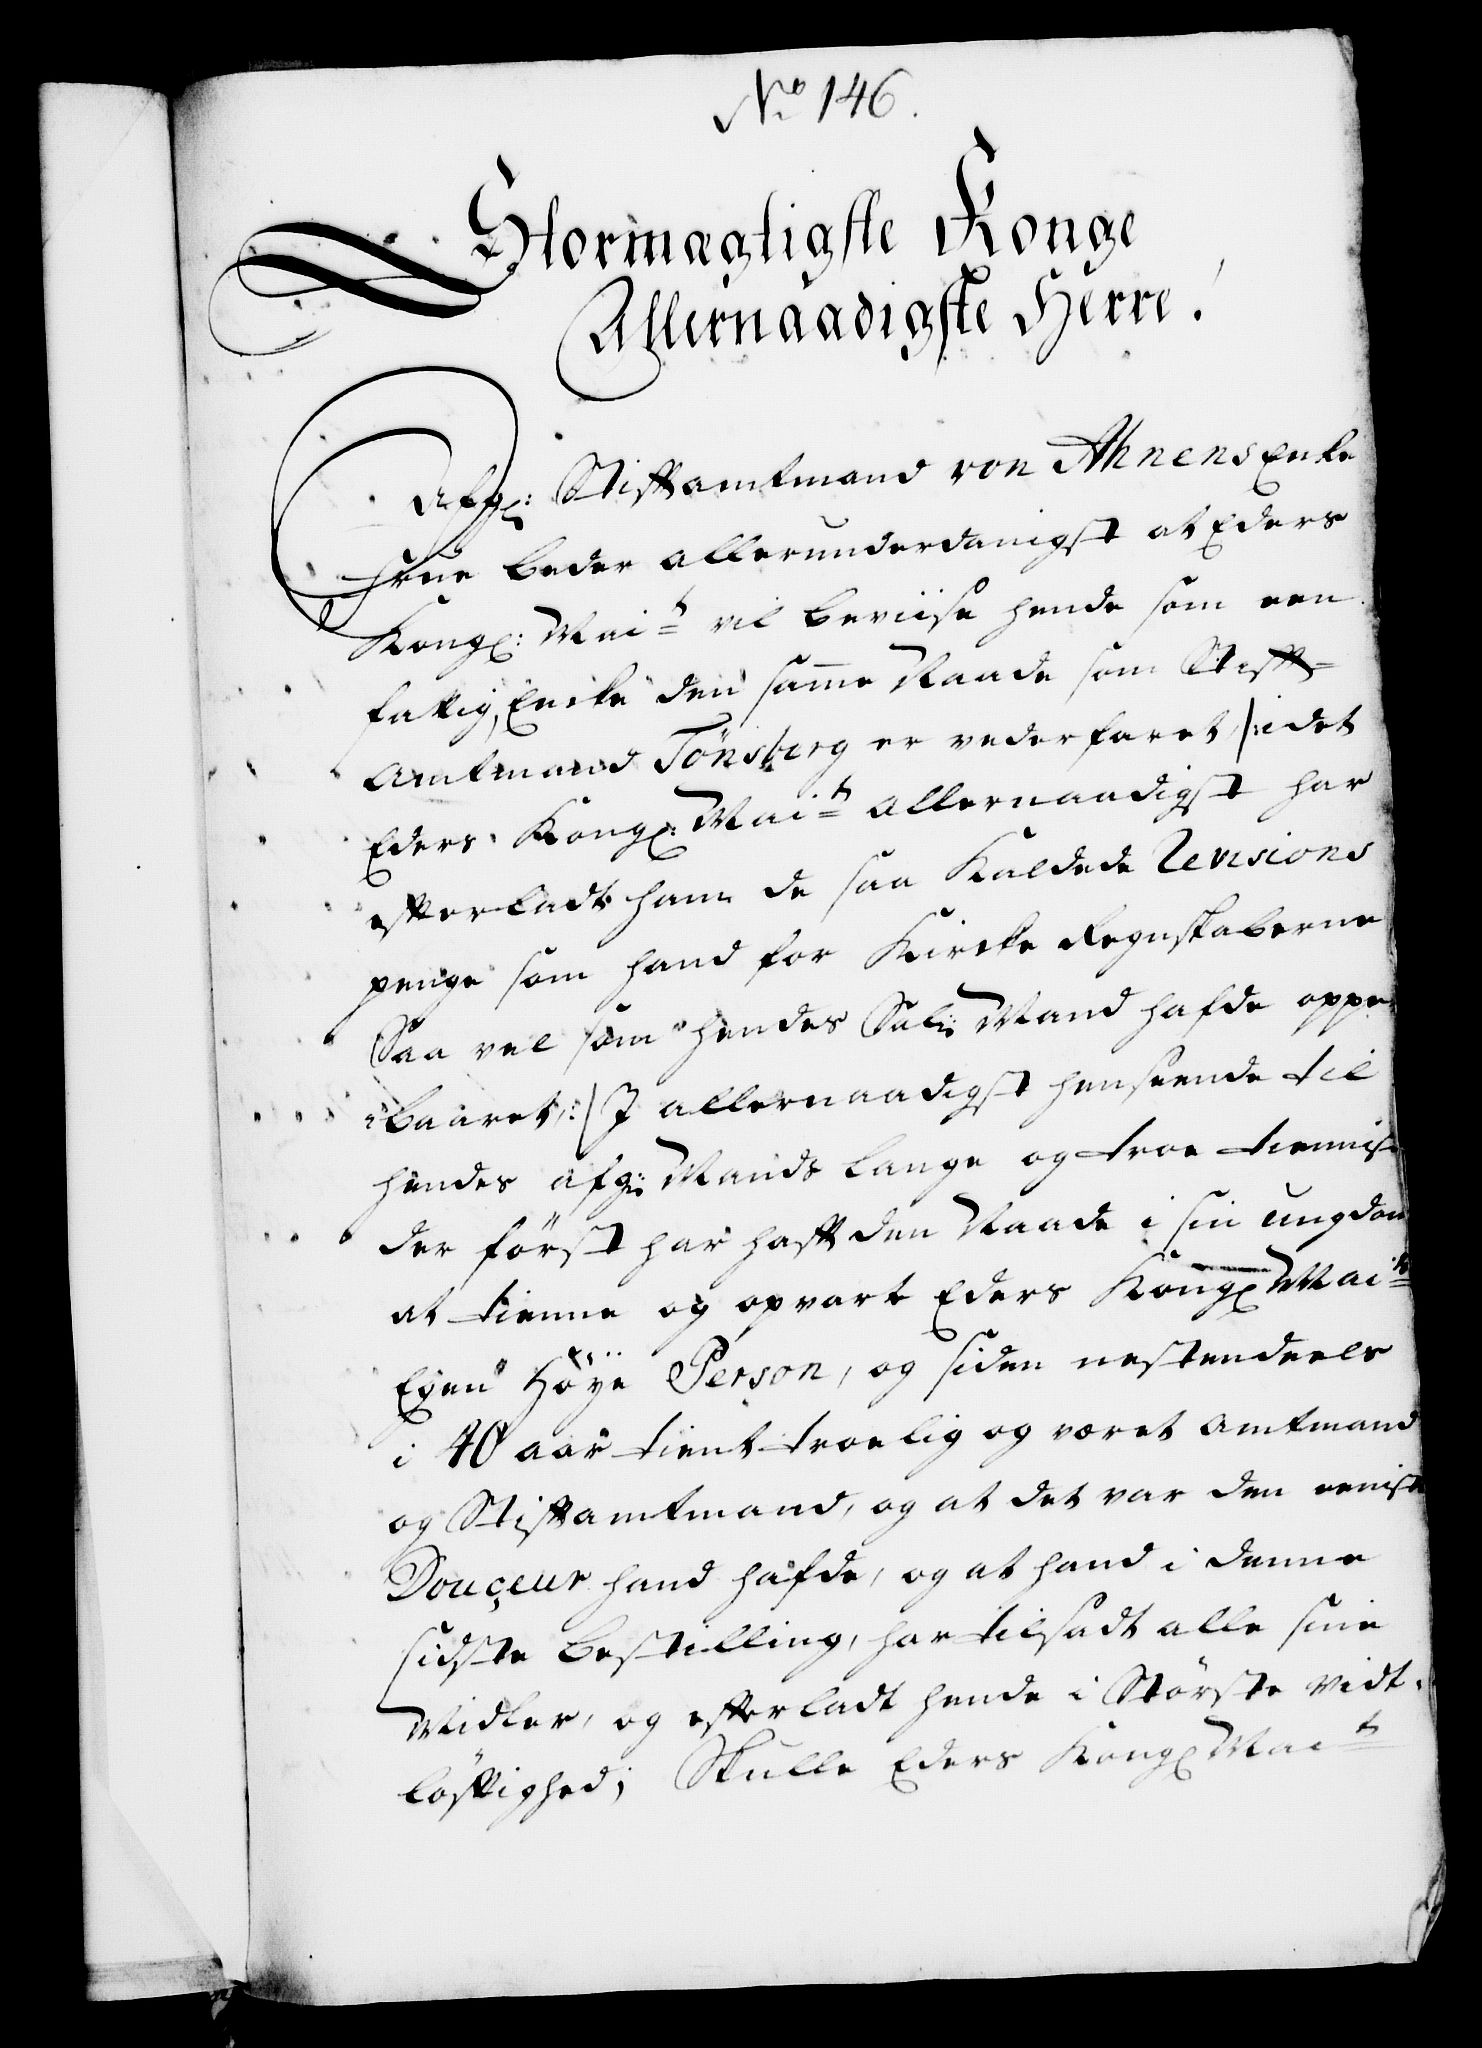 No 146.
Stormægtigste Konge
Allernaadigste Herre!
Afg: Stiftamtmand von Ahnens Enke
Frue beder allerunderdanigst at Eders
Kongl: Mait vil beviise hende som een
fattig Encke den samme Naade som Stift-
Amtmand Tönsberg er vederfaret /: idet
Eders Kongl: Mait allernaadigst har
efterladt ham de saa kaldede Revisions
penge som hand for Kircke Regnskaberne
Saa vel som hendes Sal: Mand hafde oppe-
baaret :/ I allernaadigst henseende til
hendes afg: Mands lange og troe tienniste
der först har haft den Naade i sin ungdom
at tienne og opvarte Eders Kongl Mait
Egen Höye Person, og siden nestendeels
i 40 aar tient troelig og været Amtmand
og Stiftamtmand, og at det var den eeniste
Douçeur hand hafde, og at hand i denne
sidste bestilling, har tilsadt alle sine
Midler, og efterladt hende i Störste Vidt-
löftighed; Skulle Eders Kongl Mait